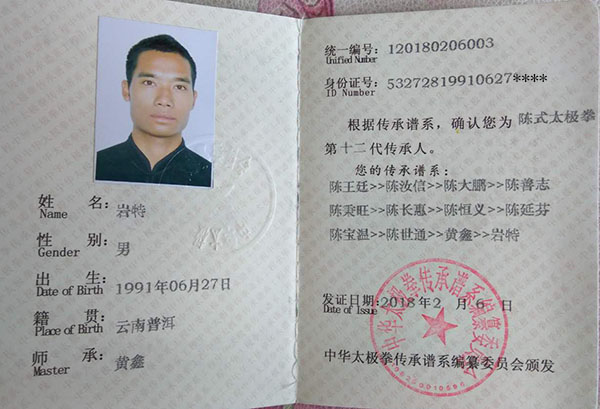 姓 名：岩特
Name
性 别：男
Gender
出 生：1991年06月27日
Date of Birth
籍 贯：云南普洱
Place of Birth
师 承：黄鑫
Master
统一编号：120180206003
Unified Number
身份证号：53272819910627****
ID Number
根据传承谱系，确认您为 陈式太极拳
第十二代传承人。
您的传承谱系：
陈王廷>>陈汝信>>陈大鹏>>陈善志
陈秉旺>>陈长惠>>陈恒义>>陈延芬
陈宝温>>陈世通>>黄鑫>>岩特
发证日期：2018年2 月 6 日
Date of Issue
中华太极拳传承谱系编纂委员会
中华太极拳传承谱系编纂委员会颁发